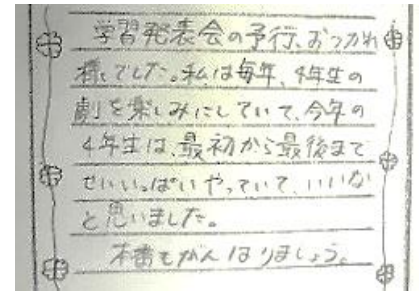 学習発表会の予行、おつかれ
様でした。私は毎年、4年生の
劇を楽しみにしていて、今年の
4年生は、最初から最後まで
せいいっぱいやっていて、いいな
と思いました。
本番もがんばりましょう。